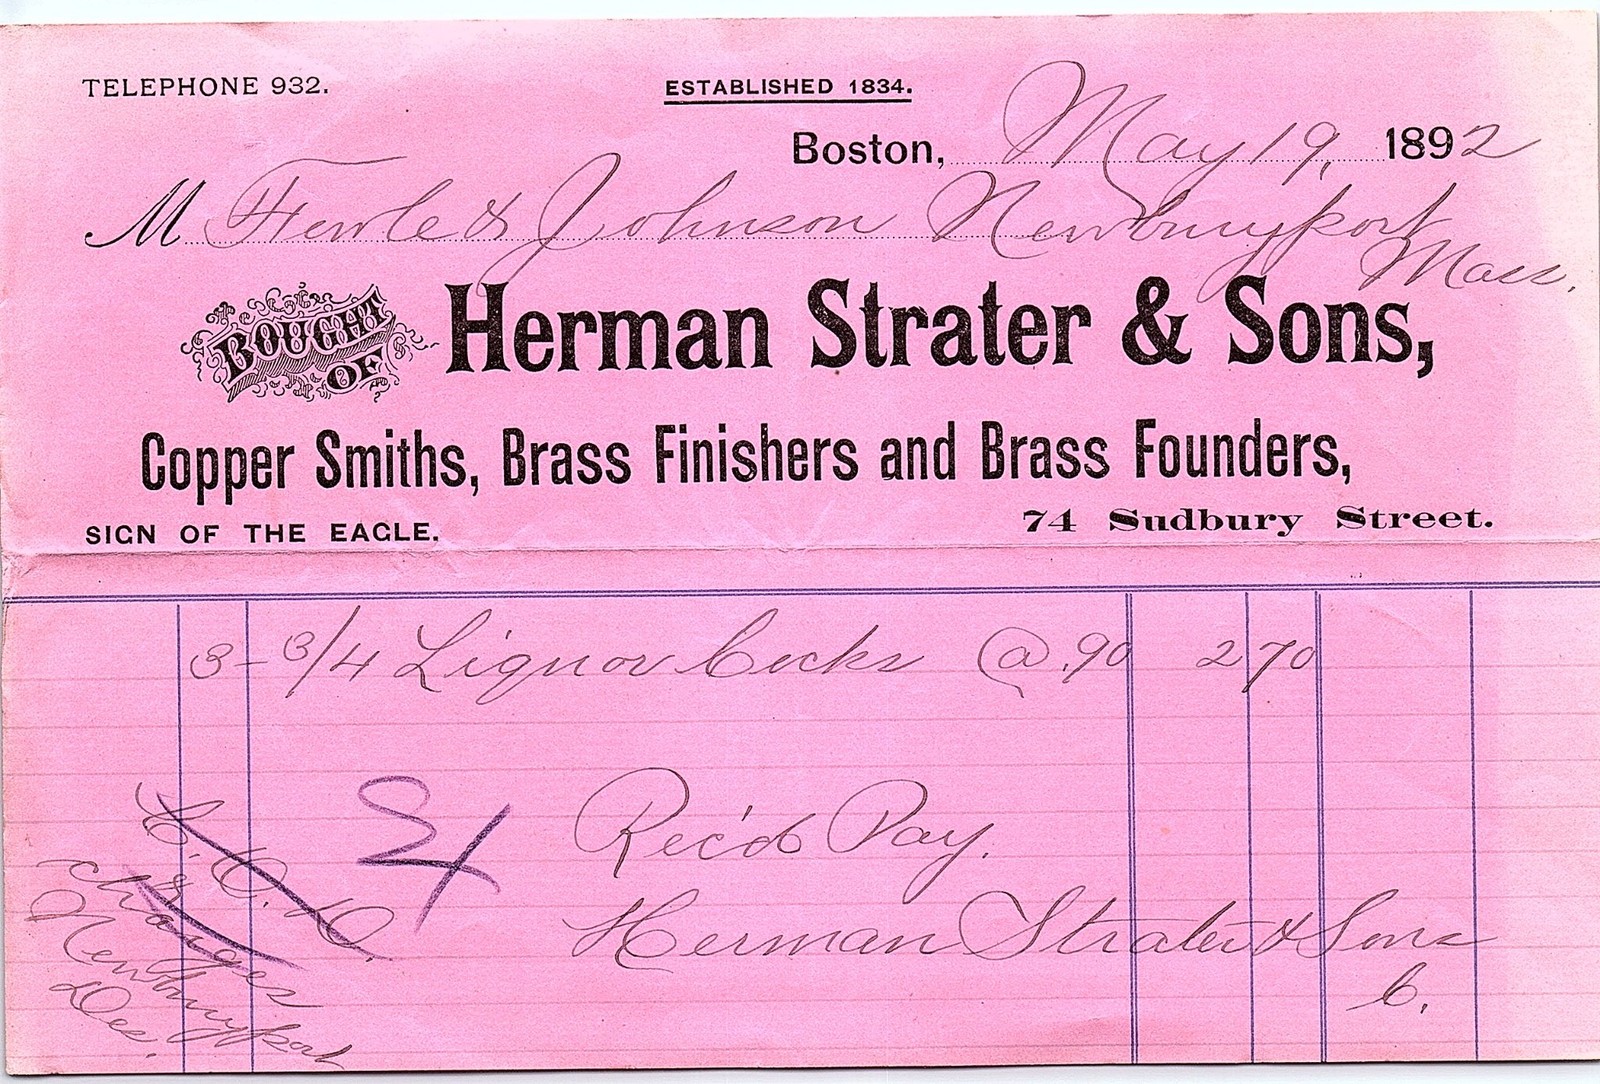 TELEPHONE 932.
ESTABLISHED 1834.
Boston, May 19, 1892
M Fowle & Johnson Newburyport
Mass.
BOUGHT OF Herman Strater & Sons,
Copper Smiths, Brass Finishers and Brass Founders,
SIGN OF THE EAGLE.
74 Sudbury Street.
3 - 3/4 Liquor Cocks @ .90 2 70
Rec'd Pay.
Herman Strater & Sons
C.
C. O. D.
&
charges
Newburyport